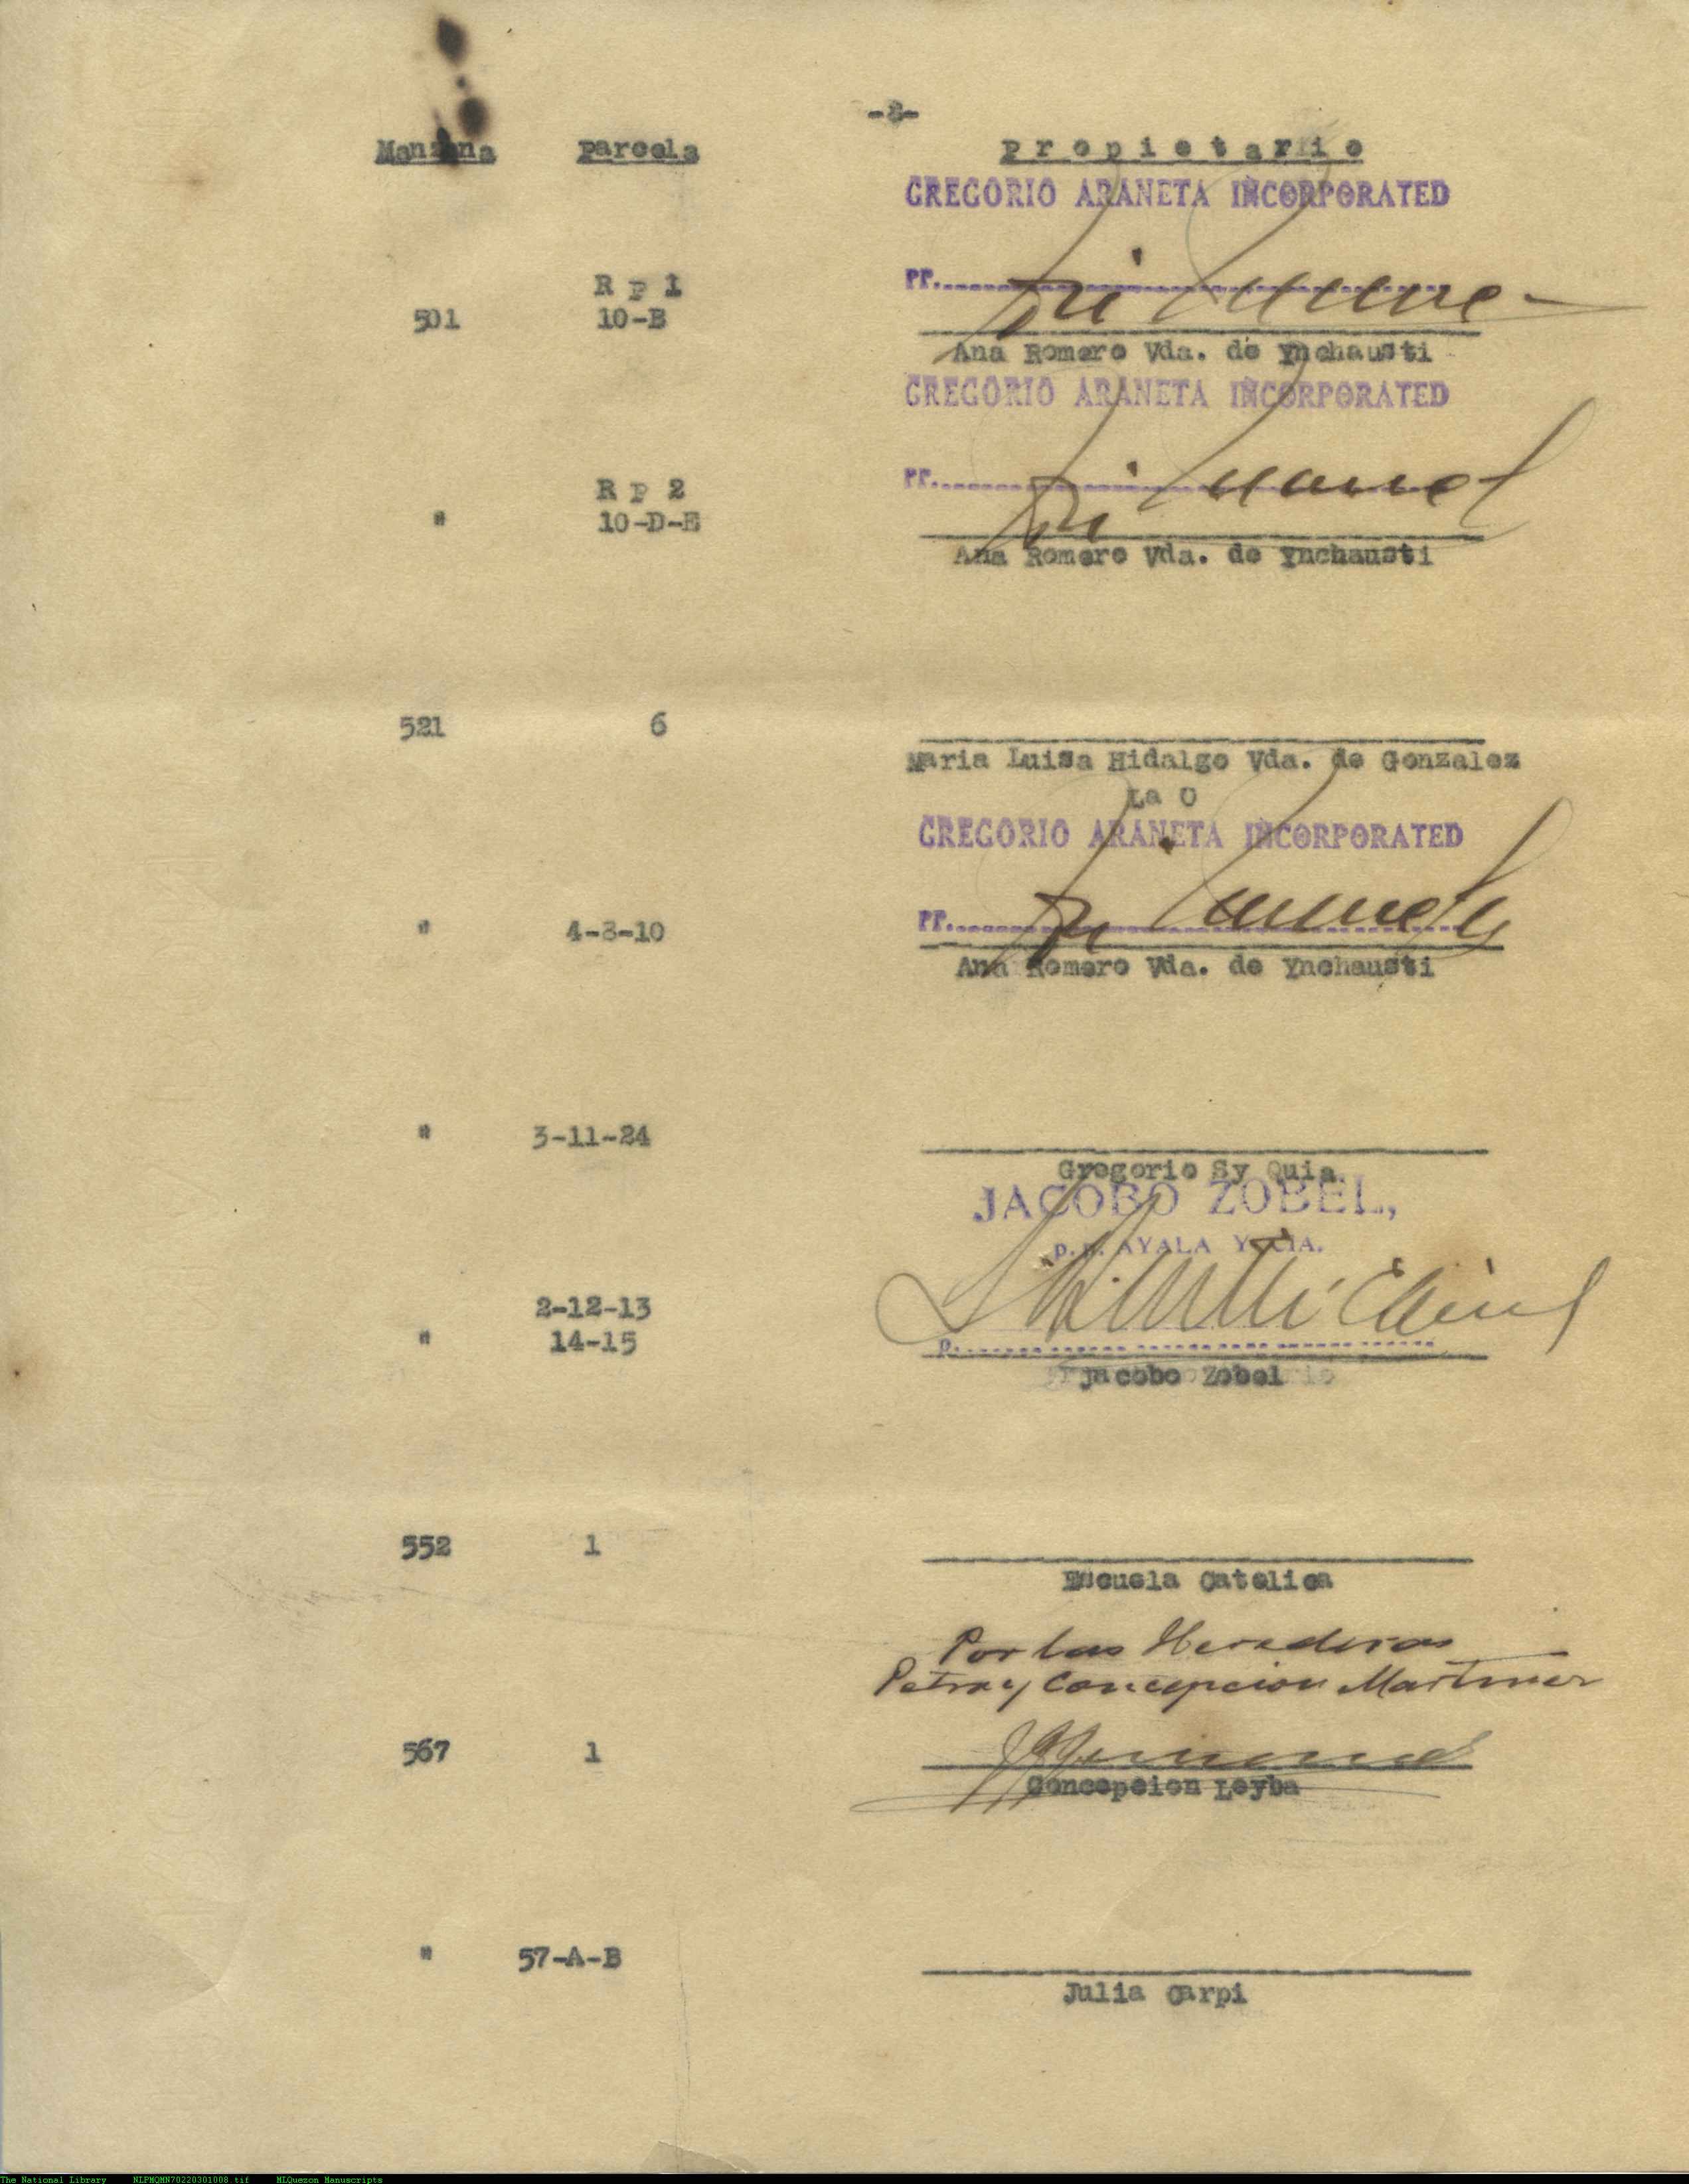 -2-
Manzana parcela propietario
GREGORIO ARANETA INCORPORATED
R p 1
pr.
501 10-B
Ana Romero Vda. de Ynchausti
GREGORIO ARANETA INCORPORATED
R p 2
pr.
" 10-D-E
Ana Romero Vda. de Ynchausti
521 6
Maria Luisa Hidalgo Vda. de Gonzalez
La O
GREGORIO ARANETA INCORPORATED
pr.
" 4-8-10
Ana Romero Vda. de Ynchausti
" 3-11-24
Gregorio Sy Quia
JACOBO ZOBEL,
p. p. AYALA Y CIA.
2-12-13
" 14-15
p.
Jacobo Zobel
552 1
Escuela Catolica
Por las Herederas
Petra y Concepcion Martinez
567 1
Concepcion Leyba
" 57-A-B
Julia Carpi
The National Library NLPMQMN70220301008.tif MLQuezon Manuscripts